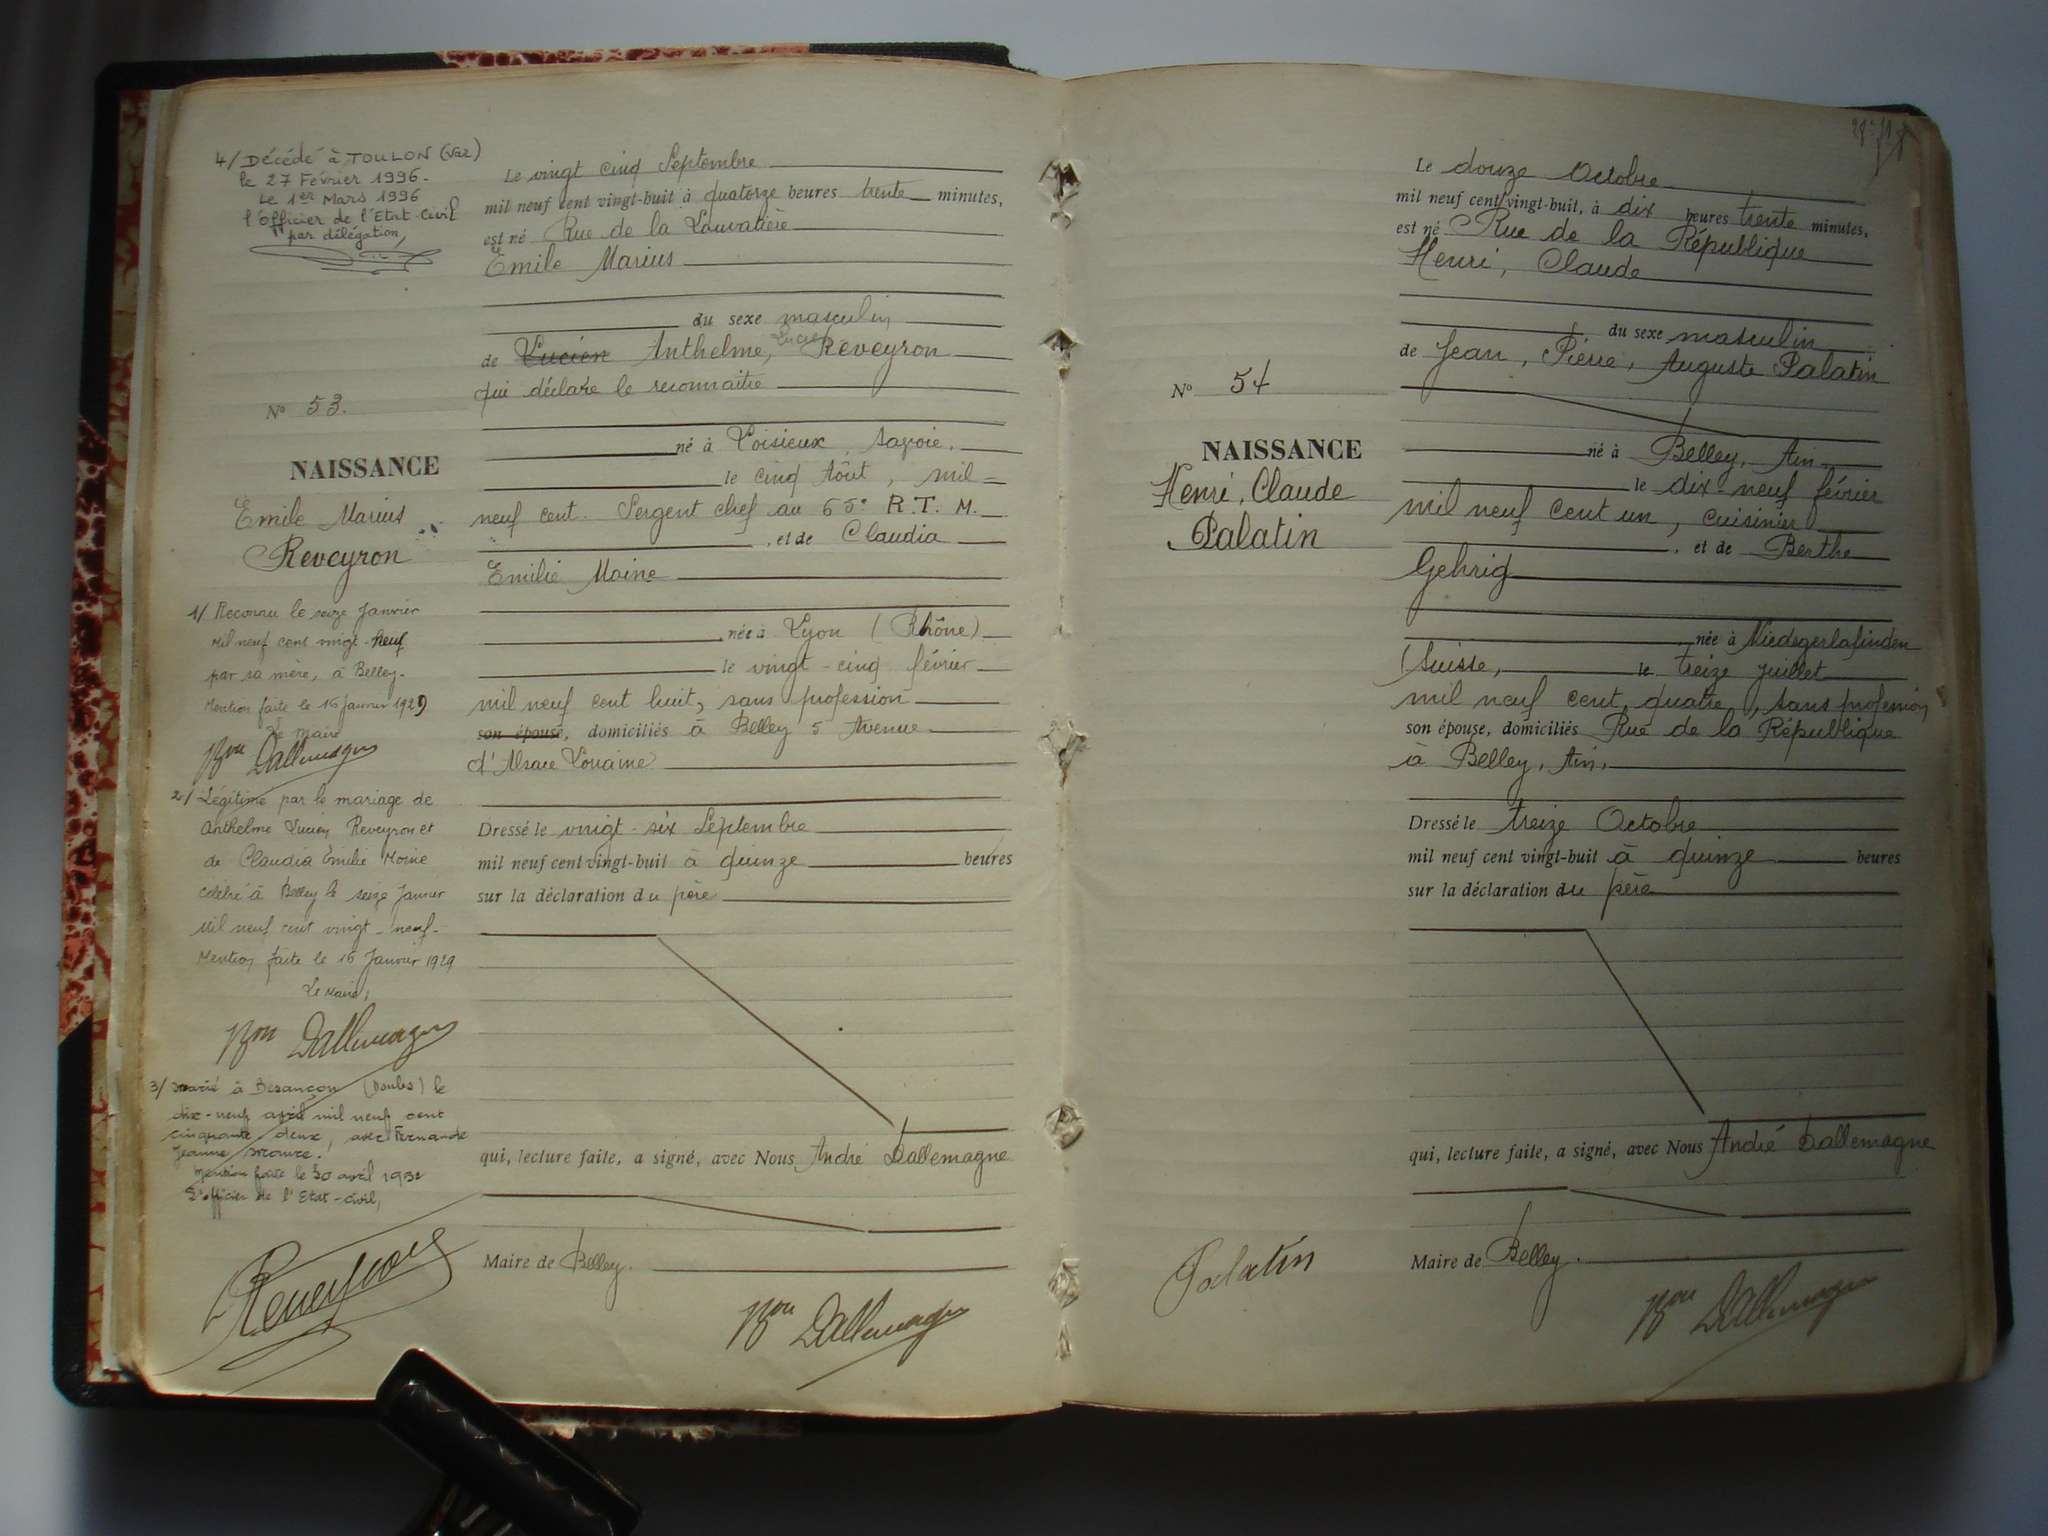 4/ Décédé à TOULON (Var)
le 27 Février 1996.
Le 1er Mars 1996
l'Officier de l'Etat Civil
par délégation,
N° 53.
NAISSANCE
Emile Marius
Reveyron
1/ Reconnu le seize Janvier
mil neuf cent vingt-neuf
par sa mère, à Belley.
Mention faite le 16 janvier 1929
Le Maire
Bon Dallemagne
2/ Légitimé par le mariage de
Anthelme Lucien Reveyron et
de Claudia Emilie Moine
célébré à Belley le seize Janvier
Mil neuf cent vingt-neuf-
Mention faite le 16 Janvier 1929
Le Maire,
Bon Dallemagne
3/ Marié à Besançon (Doubs) le
dix-neuf avril mil neuf cent
cinquante deux, avec Fernande
Jeanne
Mention faite le 30 avril 1952
L'officier de l'Etat-civil,
Reveyron
Le vingt cinq Septembre
mil neuf cent vingt-huit à quatorze heures trente minutes,
est né Rue de la
Emile Marius
du sexe masculin
de Lucien Anthelme, Lucien Reveyron
qui déclare le reconnaitre
né à Loisieux, Savoie.
le cinq Août, mil
neuf cent. Sergent chef au 65e R.T.M.
, et de Claudia
Emilie Moine
née à Lyon (Rhône)
le vingt-cinq février
mil neuf cent huit, sans profession
son épouse, domiciliés à Belley 5 Avenue
d'Alsace Lorraine
Dressé le vingt-six Septembre
mil neuf cent vingt-huit à quinze heures
sur la déclaration du père
qui, lecture faite, a signé, avec Nous André Dallemagne
Maire de Belley.
Bon Dallemagne
N° 54
NAISSANCE
Henri, Claude
Palatin
Palatin
Le douze Octobre
mil neuf cent vingt-huit, à dix heures trente minutes,
est né Rue de la République
Henri, Claude
du sexe masculin
de Jean, Pierre, Auguste Palatin
né à Belley, Ain
le dix-neuf février
mil neuf cent un, cuisinier
, et de Berthe
Gehrig
née à Niedegerlafinden
(Suisse, le treize juillet
mil neuf cent quatre, sans profession
son épouse, domiciliés Rue de la République
à Belley, Ain.
Dressé le treize Octobre
mil neuf cent vingt-huit à quinze heures
sur la déclaration du père
qui, lecture faite, a signé, avec Nous André Dallemagne
Maire de Belley.
Bon Dallemagne